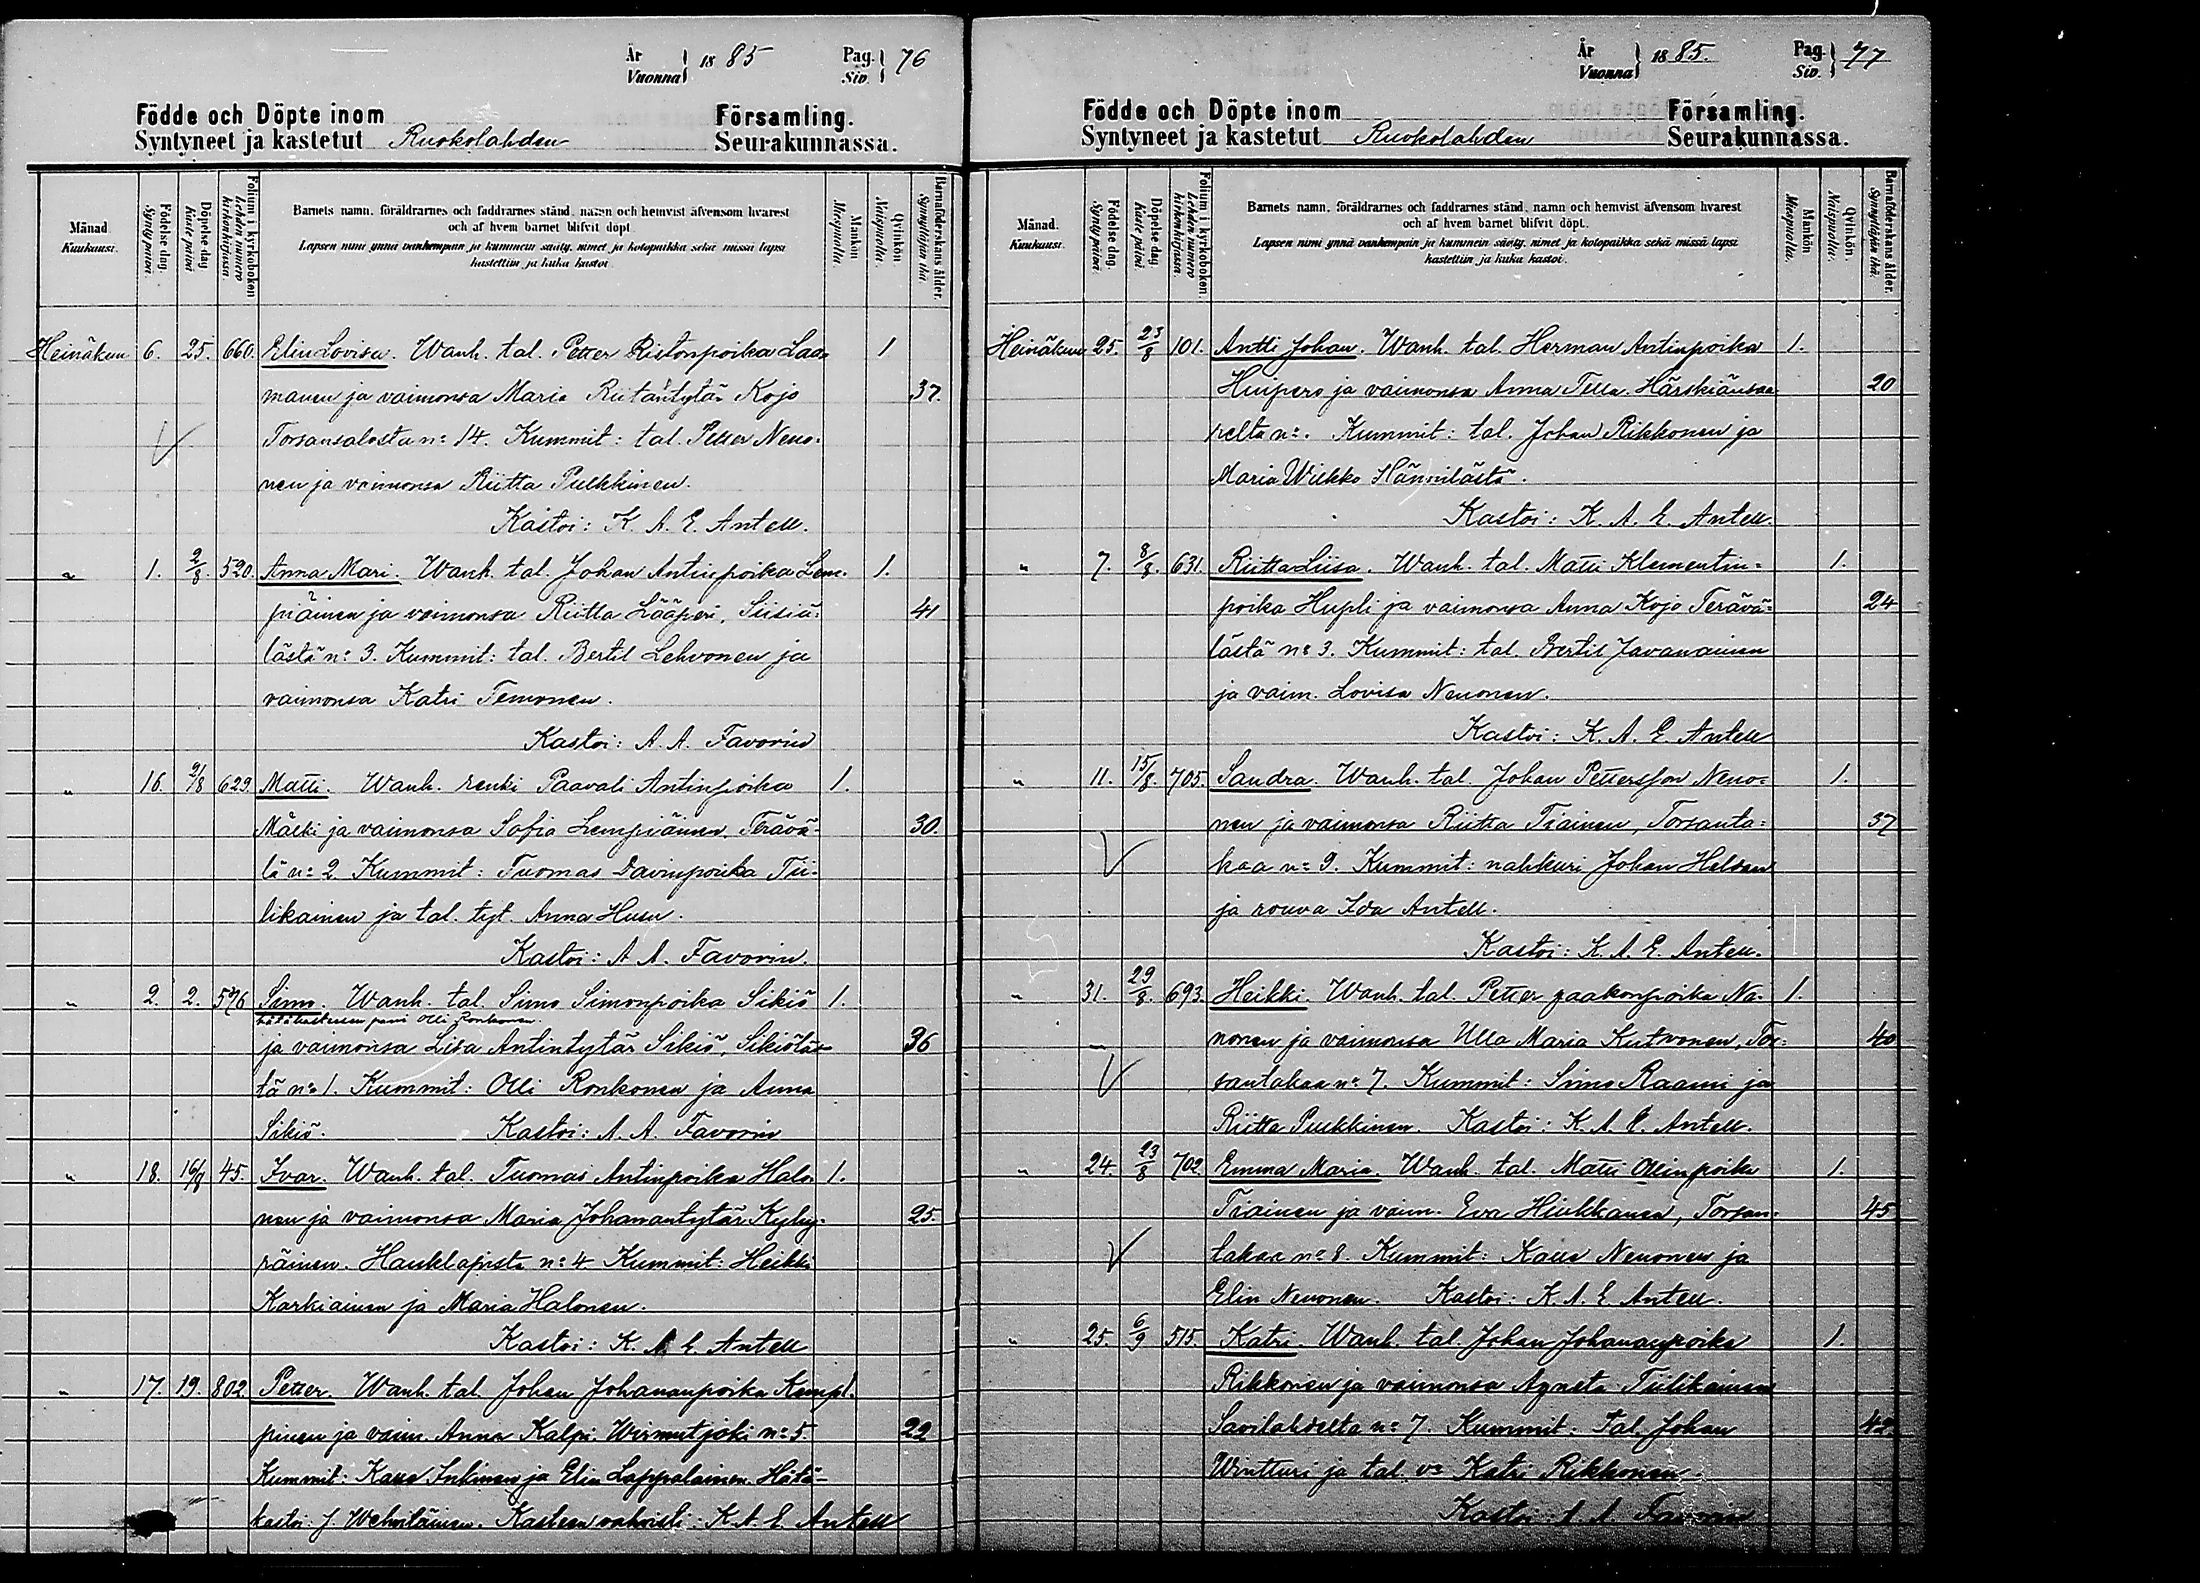 År Vuonna 1885 Pag. Siv. 76
Födde och Döpte inom Församling.
Syntyneet ja kastetut Ruokolahden Seurakunnassa.
Månad. Kuukausi. Födelse dag. Synty päivä. Döpelse dag Kaste päivä Folium i kyrkoboken Lehden numero kirkonkirjassa. Barnets namn, föräldrarnes och faddrarnes stånd, namn och hemvist äfvensom hvarest Mankön Miespuolia. Qvinkön. Naispuolia. Barnaföderskans ålder. Synnyttäjän ikä.
och af hvem barnet blifvit döpt.
Lapsen nimi ynnä vanhempain ja kummein sääty, nimet ja kotopaikka sekä missä lapsi
kastettiin ja kuka kastoi.
Heinäkuu 6. 25. 660. Elin Lovisa. Wanh. tal. Petter Ristonpoika Laa- 1
manen ja vaimonsa Maria Riitantytär Kojo 37.
Torsansalosta n:o 14. Kummit: tal. Petter Neuo-
nen ja vaimonsa Riitta Pulkkinen.
Kastoi: K. A. E. Antell.
" 1. 2/8. 520. Anna Mari. Wanh. tal. Johan Antinpoika Lem- 1.
piäinen ja vaimonsa Riitta Lääperi, Siisiä- 41
lästä n:o 3. Kummit: tal. Bertel Lehvonen ja
vaimonsa Katri Temonen.
Kastoi: A. A. Favorin
" 16. 2/8 629. Matti. Wanh. renki Paavali Antinpoika 1.
Mäski ja vaimonsa Sofia Lempiäinen, Terävä- 30.
lä n:o 2. Kummit: Tuomas Davinpoika Tii-
likainen ja tal. tyt. Anna Husu.
Kastoi: A. A. Favorin.
" 2. 2. 576 Simo. Wanh. tal. Simo Simonpoika Sikiö 1.
hätäkasteen pani Olli Ronkonen.
ja vaimonsa Lisa Antintytär Sikiö, Sikiöläs- 36
tä n:o 1. Kummit: Olli Ronkonen ja Anna
Sikiö. Kastoi: A. A. Favorin
" 18. 16/8 45. Ivar. Wanh. tal. Tuomas Antinpoika Halo- 1.
nen ja vaimonsa Maria Johanantytär Kyhy- 25.
räinen. Hauklapista n:o 4 Kummit: Heikki
Karkiainen ja Maria Halonen.
Kastoi: K. A. E. Antell
" 17. 19. 802. Petter. Wanh. tal. Johan Johananpoika Kemp-
pinen ja vaim. Anna Kalpi. Wirmutjoki n:o 5. 22
Kummit: Kaua Inkinen ja Elin Lappalainen. Hätä-
kastoi J. Wehviläinen. Kasteen vahvisti: K. A. E. Antell
År Vuonna 1885. Pag. Siv. 77
Födde och Döpte inom Församling.
Syntyneet ja kastetut Ruokolahden Seurakunnassa.
Månad. Kuukausi. Födelse dag. Synty päivä. Döpelse dag. Kaste päivä Folium i kyrkoboken. Lehden numero kirkonkirjassa. Barnets namn, föräldrarnes och faddrarnes stånd, namn och hemvist äfvensom hvarest Mankön Miespuolia. Qvinkön. Naispuolia. Barnaföderskans ålder. Synnyttäjän ikä.
och af hvem barnet blifvit döpt.
Lapsen nimi ynnä vanhempain ja kummein sääty, nimet ja kotopaikka sekä missä lapsi
kastettiin ja kuka kastoi.
Heinäkuu 25. 23/8 101. Antti Johan. Wanh. tal. Herman Antinpoika 1.
Huipero ja vaimonsa Anna Tella. Härskiänsaa- 20
relta n:o. Kummit: tal. Johan Rikkonen ja
Maria Wilkko Hännilästä.
Kastoi: K. A. E. Antell.
" 7. 8/8. 631. Riitta Liisa. Wanh. tal. Matti Klementin- 1.
poika Hupli ja vaimonsa Anna Kojo Terävä- 24
lästä n:o 3. Kummit: tal. Bertil Javanainen
ja vaim. Lovisa Neuonen.
Kastoi: K. A. E. Antell
" 11. 15/8. 705. Sandra. Wanh. tal. Johan Pettersson Neuo- 1.
nen ja vaimonsa Riitta Tiainen, Torsanta- 37
kaa n:o 9. Kummit: nahkuri Johan Halsan
ja rouva Ida Antell.
Kastoi: K. A. E. Antell.
" 31. 29/8. 693. Heikki. Wanh. tal. Petter Jaakonpoika Na- 1.
nonen ja vaimonsa Ulla Maria Kutvonen, Tor- 40
santakaa n:o 7. Kummit: Simo Raami ja
Riitta Pulkkinen. Kastoi: K. A. E. Antell.
" 24. 23/8 702. Emma Maria. Wanh. tal. Matti Ollinpoika 1.
Tiainen ja vaim. Eva Hiukkanen, Torsan- 45
takaa n:o 8. Kummit: Kaua Neuonen ja
Elin Neuonen. Kastoi: K. A. E. Antell.
" 25. 6/9 515. Katri. Wanh. tal. Johan Johananpoika 1.
Rikkonen ja vaimonsa Agneta Tiilikainen
Savilahdelta n:o 7. Kummit: Tal. Johan 42
Wintturi ja tal. v:o Katri Rikkonen.
Kastoi A. A. Favorin